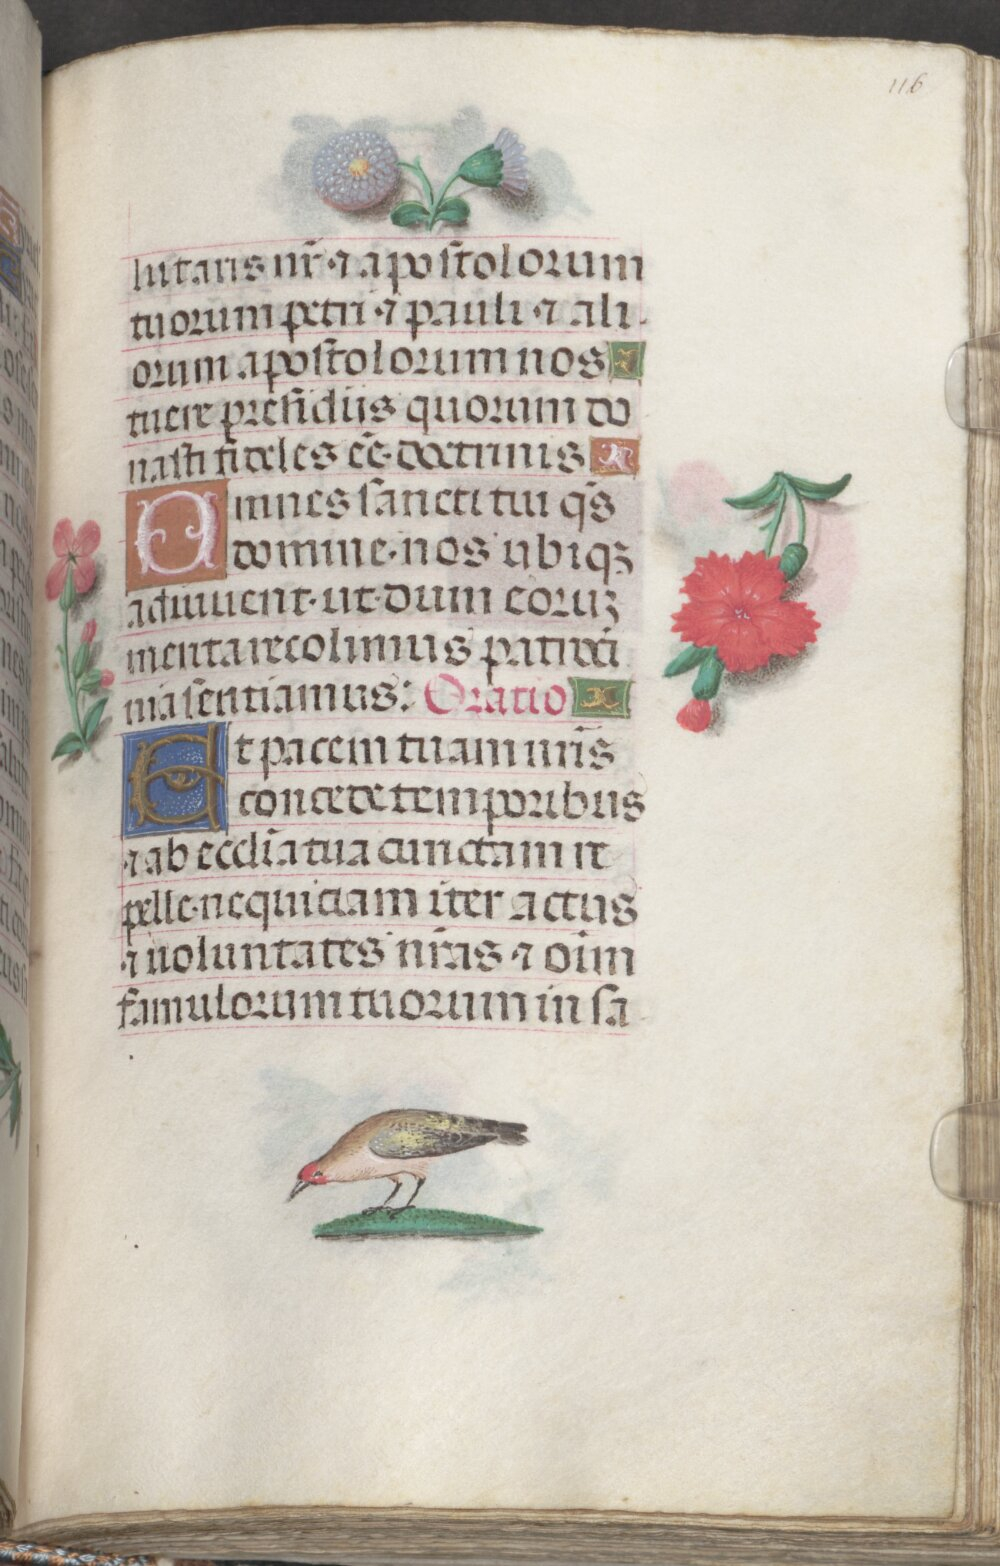 116
lutaris nr̄ ⁊ apostolorum
tuorum petri ⁊ pauli ⁊ ali
orum apostolorum nos
tuere presidiis quorum do
nasti fideles eē doctrinis
Omnes sancti tui qs̄
domine· nos ubiqꝫ
adiuuent· ut· dum eoruꝫ
merita recolimus patroci
nia sentiamus: Oratio
Et pacem tuam nrīs
concede temporibus
⁊ ab eccl̄ia tua cunctam re
pelle· nequiciam iter actus
⁊ uoluntates nr̄as ⁊ oīm
famulorum tuorum in sa